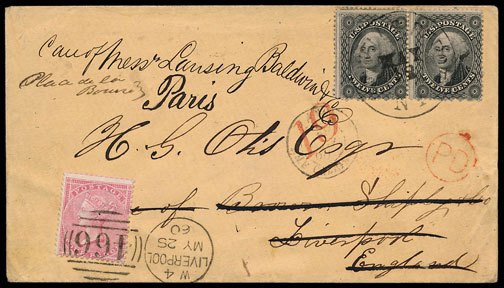 U.S. POSTAGE U.S. POSTAGE
TWELVE CENTS TWELVE CENTS
Care of Messrs Lansing Baldwin & Co
Place de la
Bourse
Paris
H. G. Otis Esqr
19
PD
of Brown Shipley & Co
Liverpool
England
POSTAGE
466
LIVERPOOL
W 4
MY 25
60
N